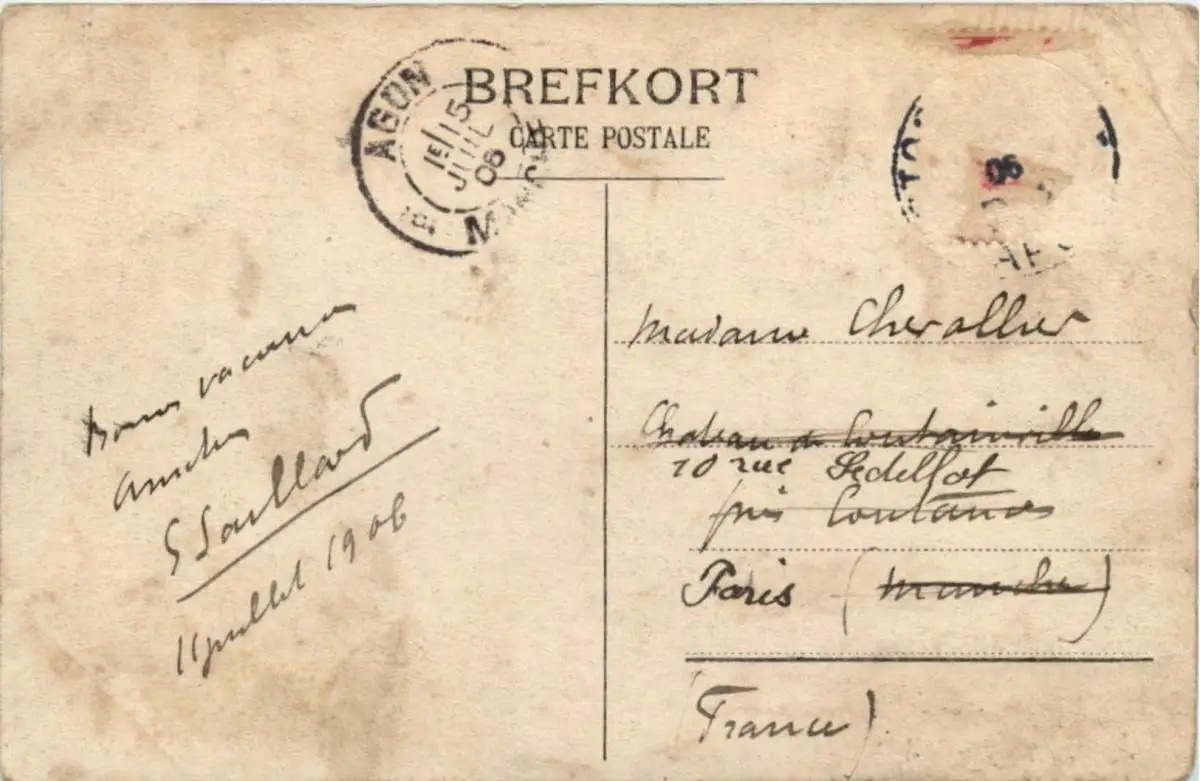 BREFKORT
CARTE POSTALE
AGON
1E/15
JUIL
06
MANCHE
STO
06
Madame Chevallier
Chateau de Coutainville
10 rue
près Coutances
Paris (Manche)
(France)
Bonnes vacances
amitiés
G Gaillard
11 juillet 1906